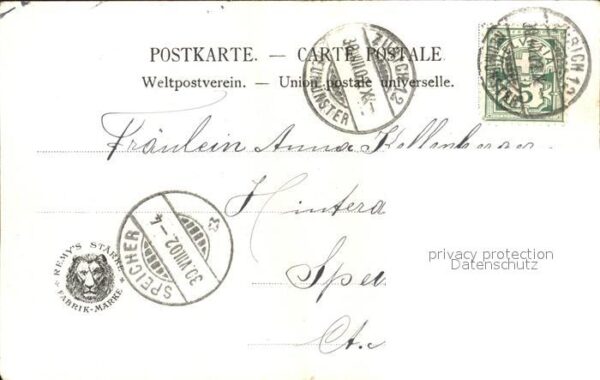 POSTKARTE. — CARTE POSTALE.
Weltpostverein. — Union postale universelle.
ZÜRICH 12
30.VIII.02.XI-
FRAUMÜNSTER
5
Fräulein Anna Kellenberger
Hintera
Spei
Ct.
SPEICHER
30.VIII.02.-4
REMY'S STÄRKE
FABRIK-MARKE
privacy protection
Datenschutz